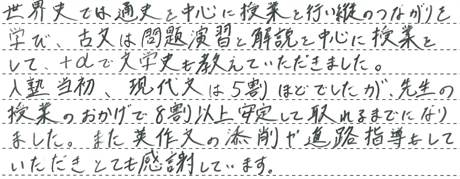 世界史では通史を中心に授業を行い縦のつながりを
学び、古文は問題演習と解説を中心に授業を
して、+αで文学史も教えていただきました。
入塾当初、現代文は5割ほどでしたが、先生の
授業のおかげで8割以上安定して取れるまでになり
ました。また英作文の添削や進路指導もして
いただきとても感謝しています。